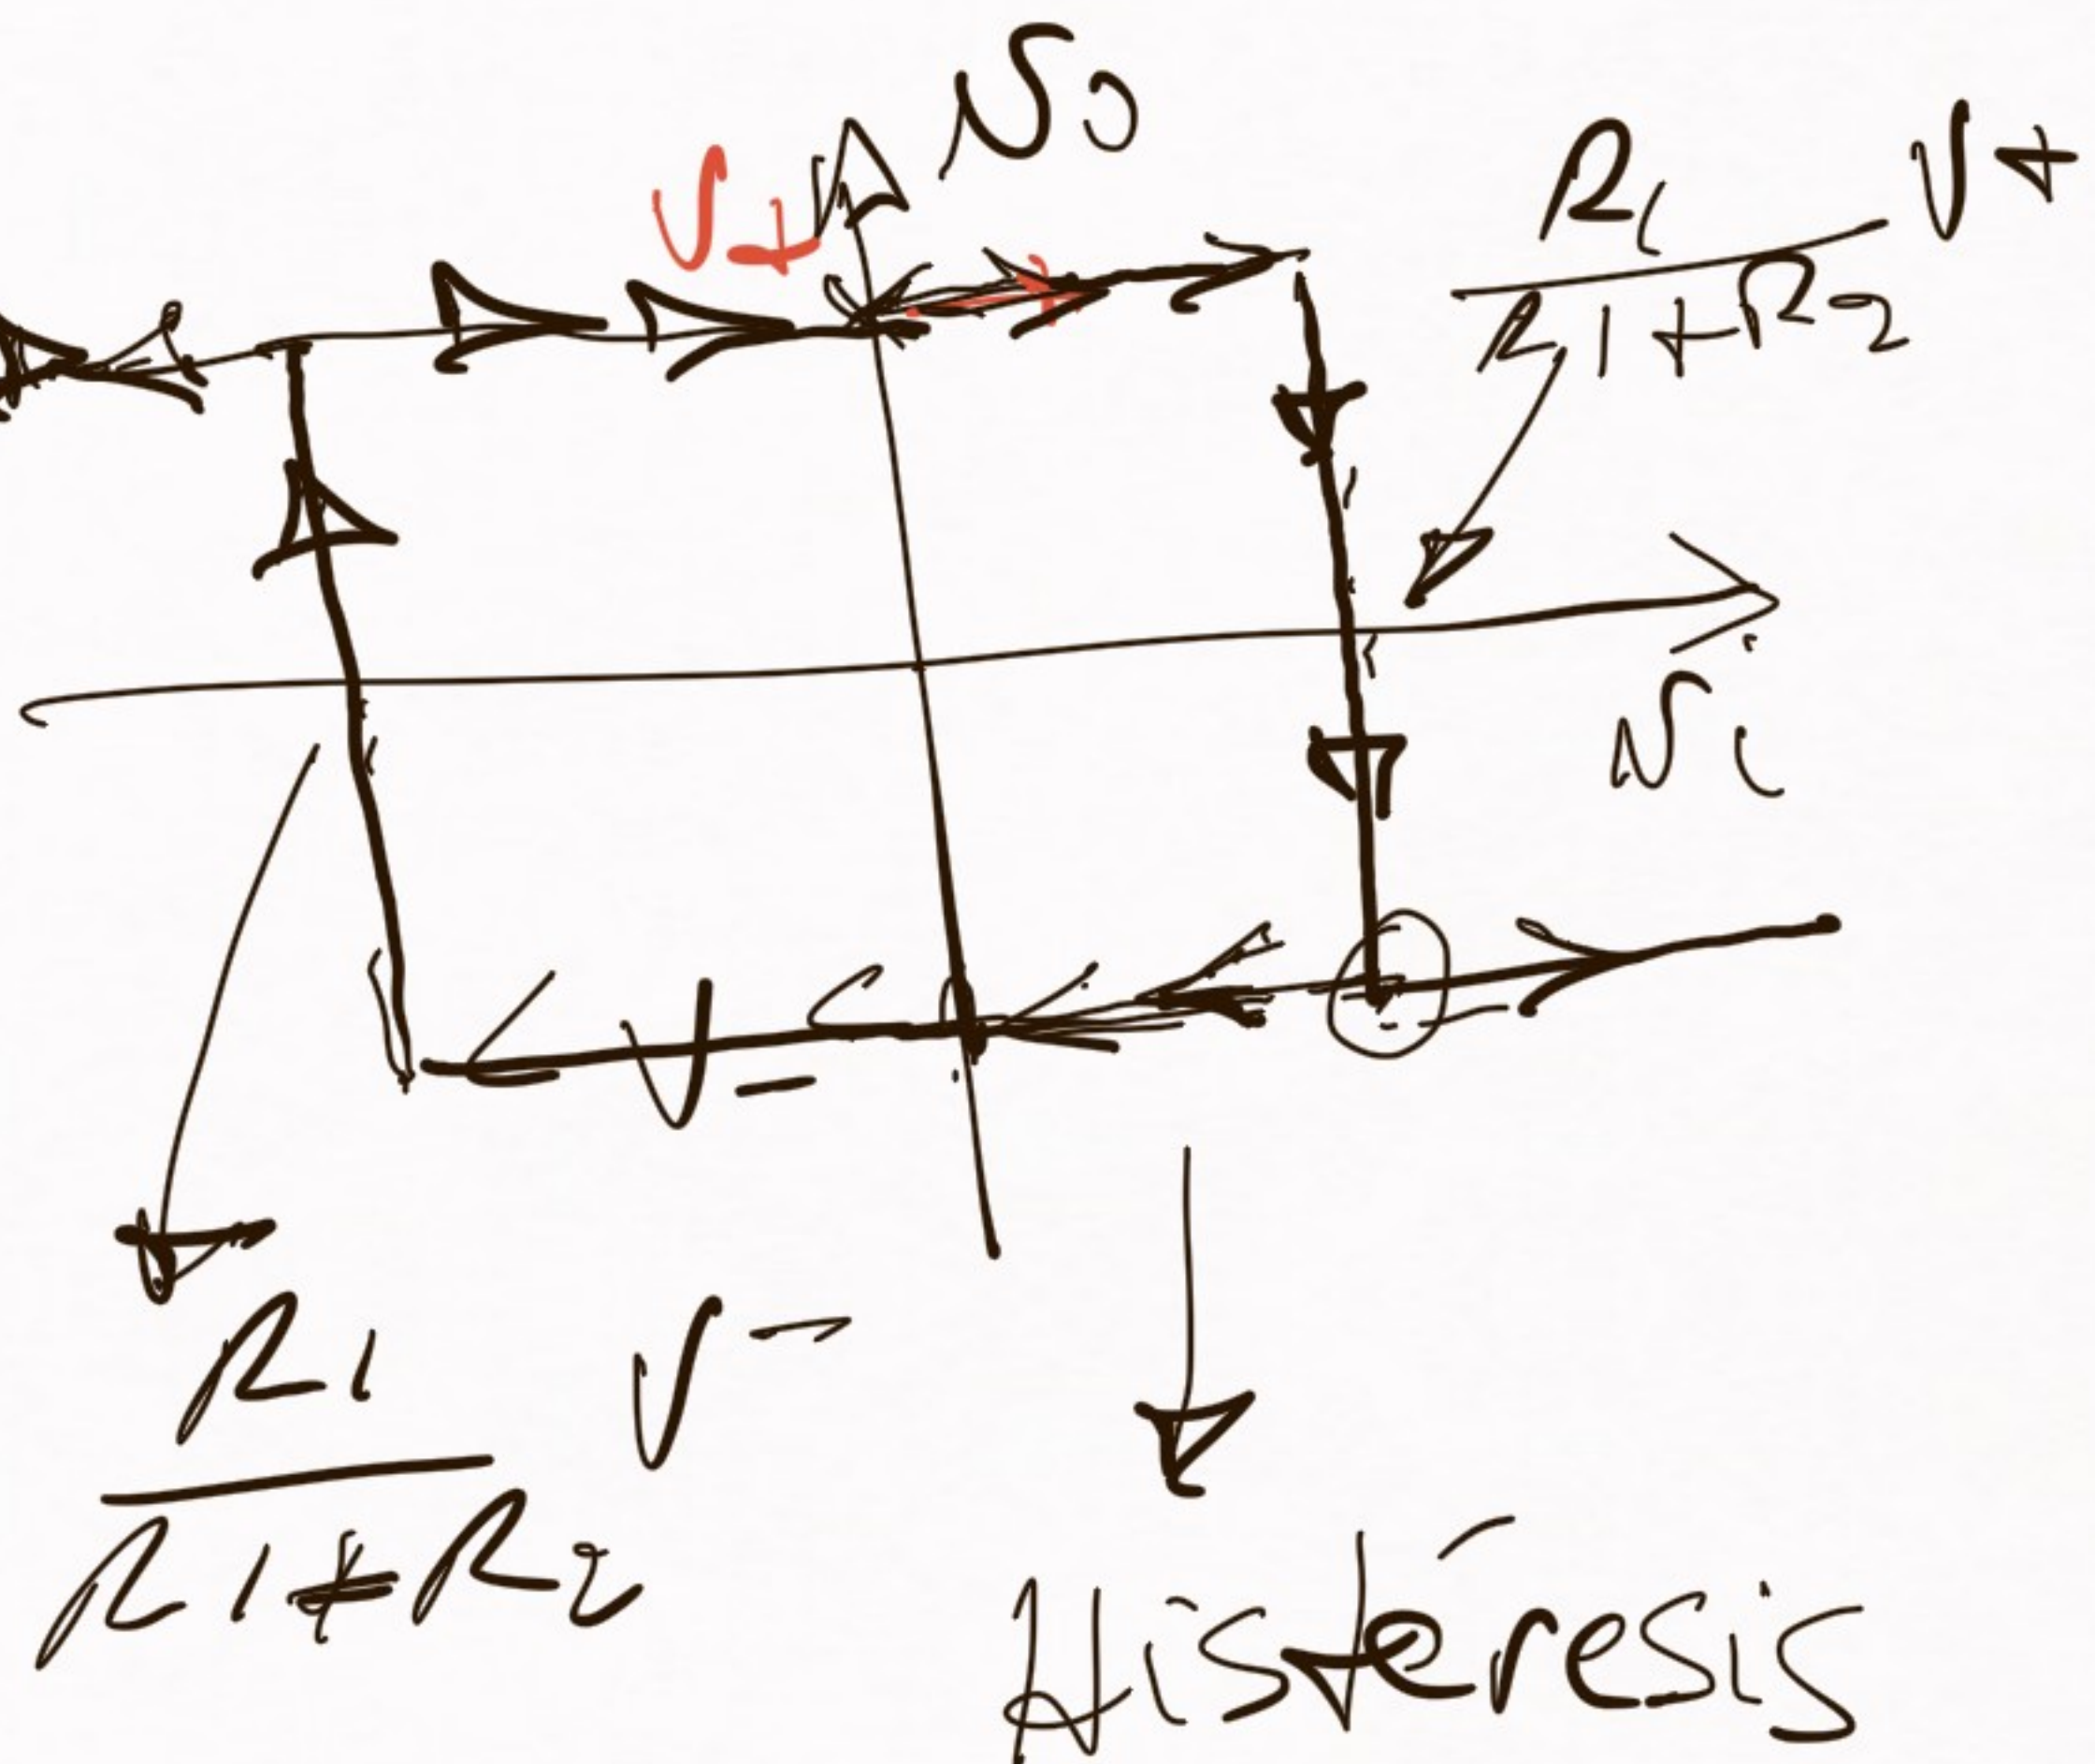 V+
vo
R1
V+
R1+R2
vi
V-
R1
V-
R1+R2
Histéresis